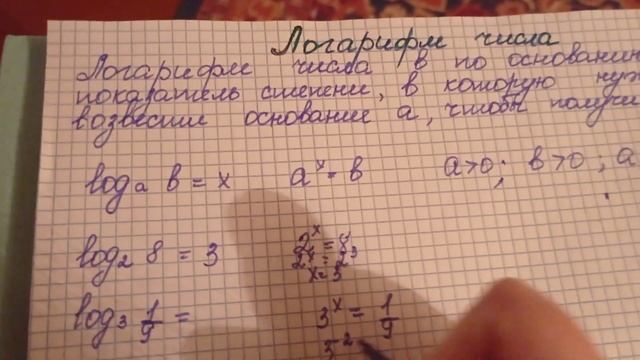 Логарифм числа
Логарифм числа b по основанию
показатель степени, в которую
возвести основание a, чтобы
logₐ b = x aˣ = b a>0; b>0; a
log₂ 8 = 3 2ˣ = 8
2ˣ = 2³
x = 3
log₃ 1/9 = 3ˣ = 1/9